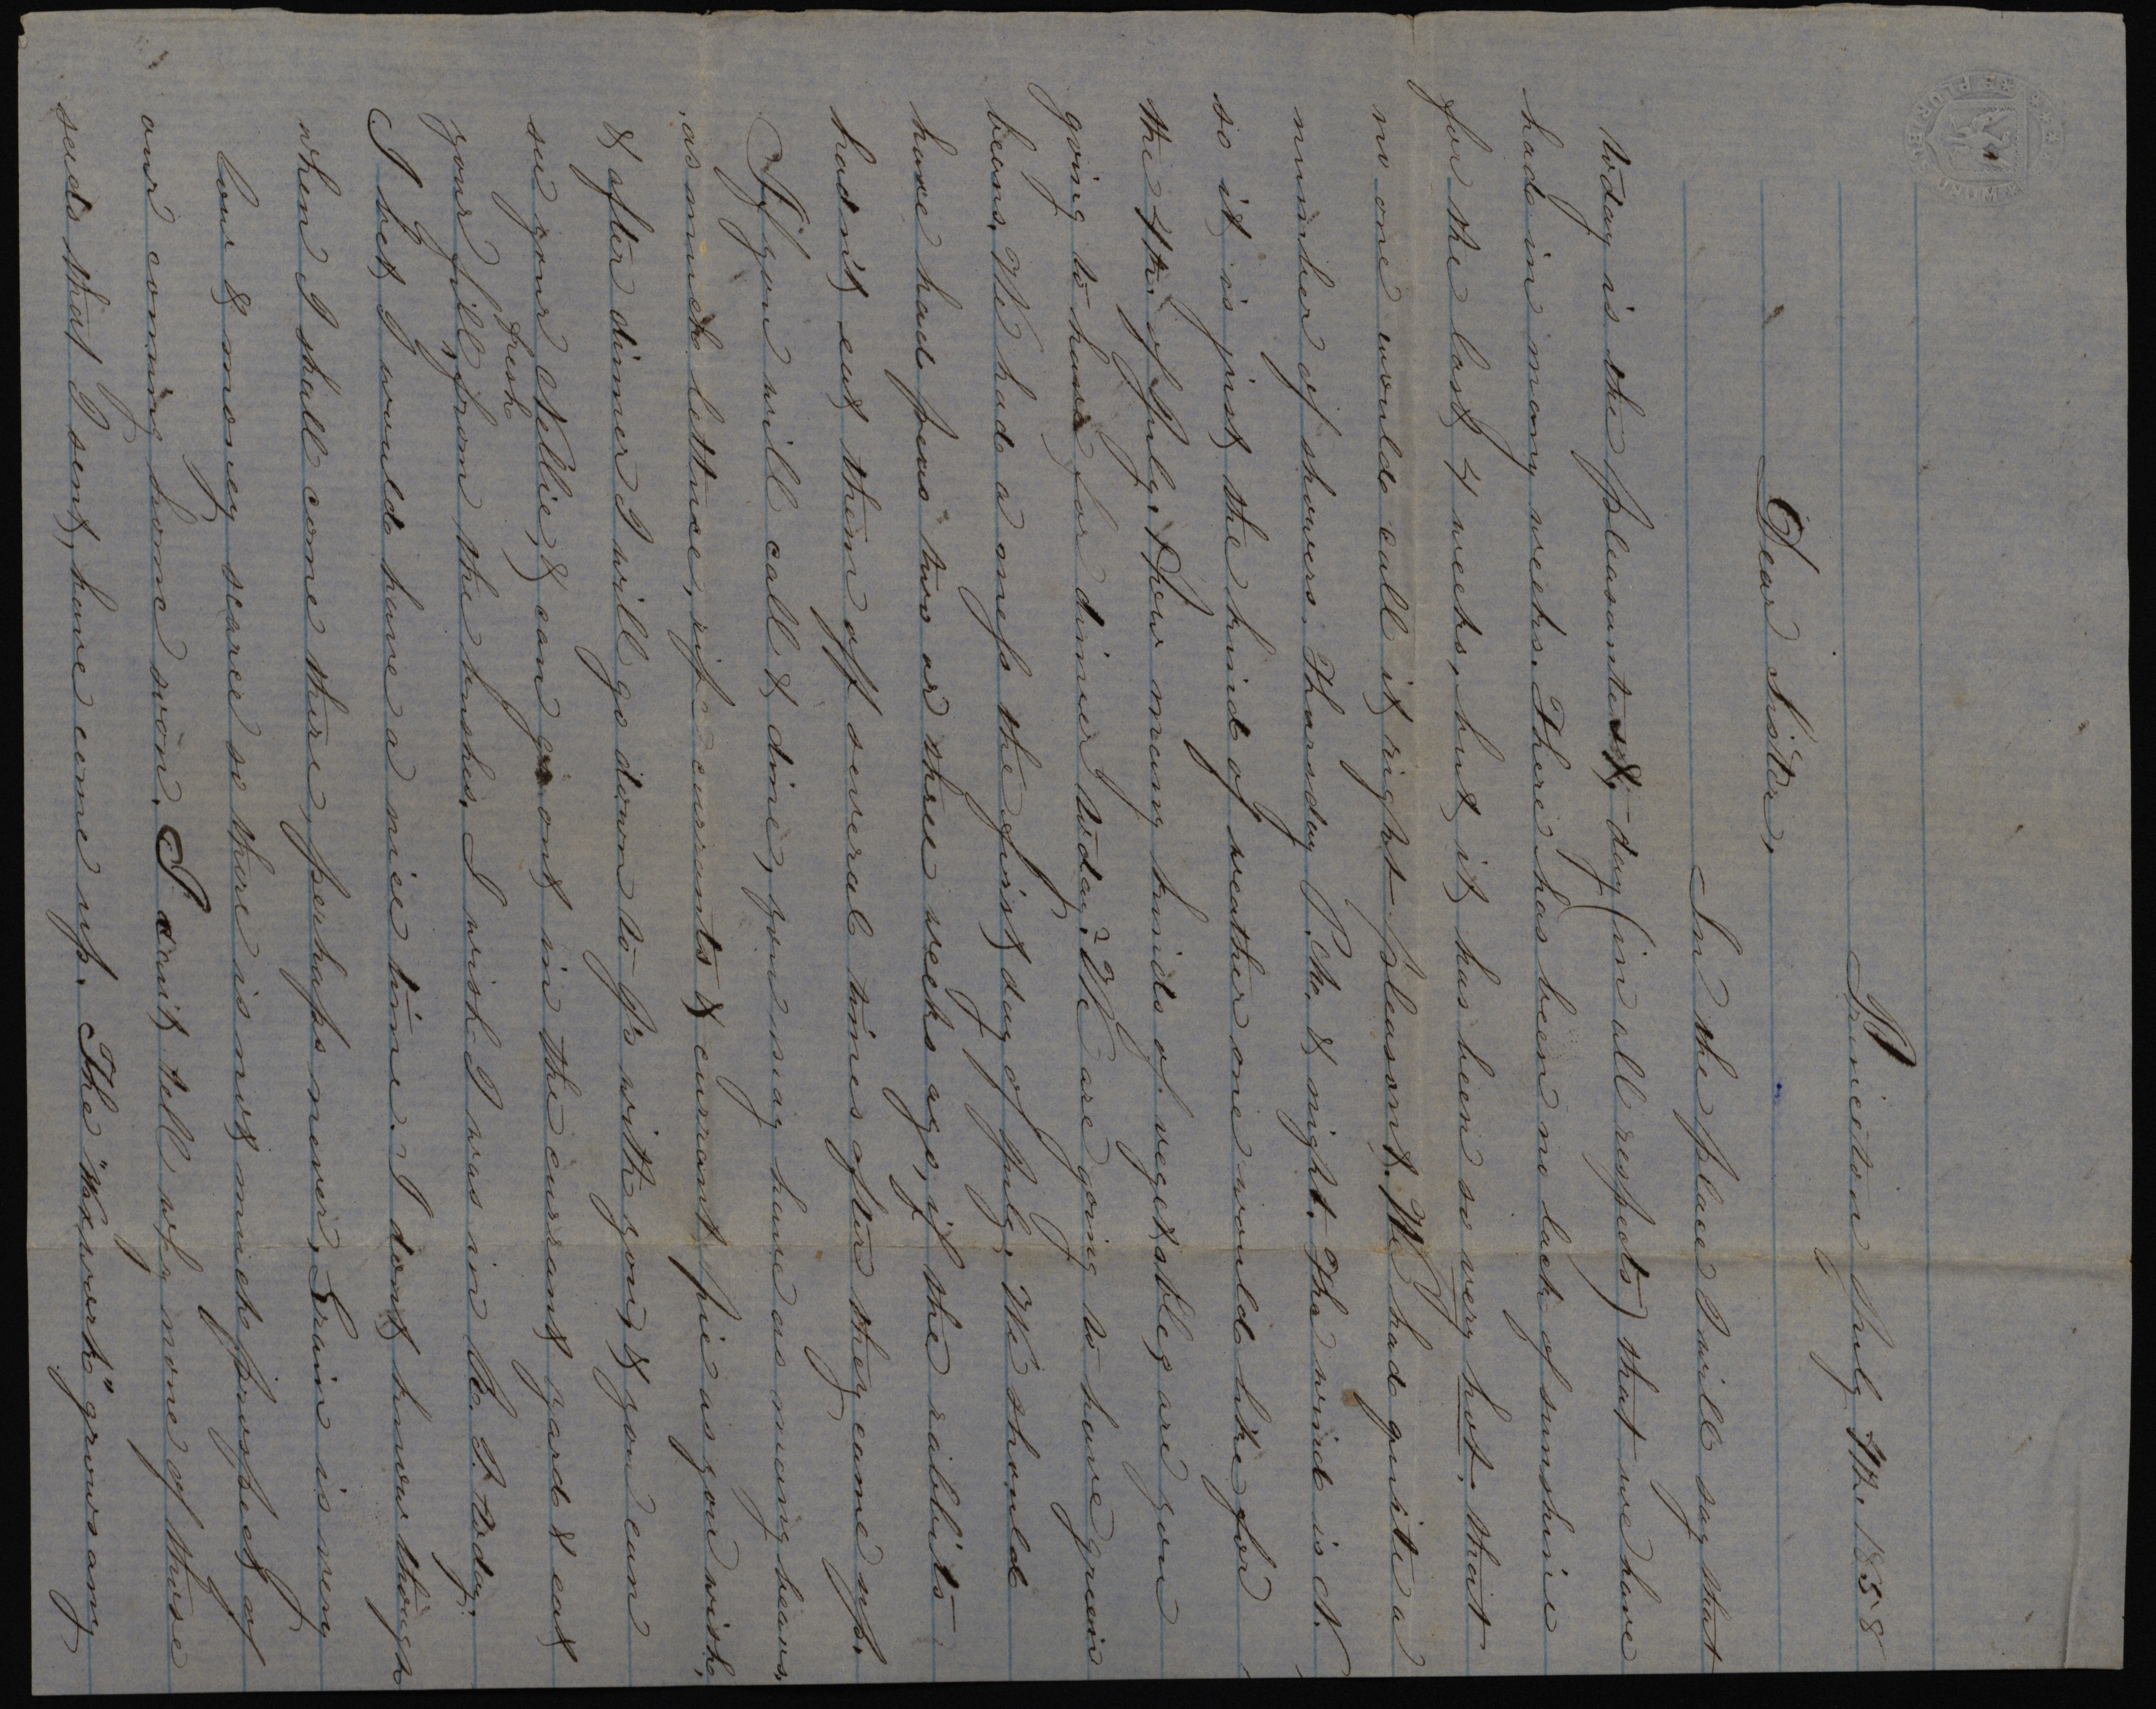 E PLURIBUS UNUM
Princeton July 4th. 1858
Dear Sister,
In the place I will say that
today is the pleasantest day (in all respects) that we have
had in many weeks. There has been no lack of sunshine
for the last 4 weeks, but it has been so very hot, that
no one would call it right pleasant. We had quite a
number of showers Thursday P.M. & night. The wind is N.
so it is just the kind of weather one would like for
the 4th. of July. How many kinds of vegetables are you
going to have for dinner today? We are going to have green
beans. We had a mess the first day of July. We should
have had peas two or three weeks ago, if the rabbits
hadn't eat them off several times after they came up.
If you will call & dine, you may have as many beans,
as much lettuce, ripe currants & currant pie as you wish,
& after dinner I will go down to J's with you, & you can
see your Nellie, & can go out in the currant yard & eat
your fill, fresh from the bushes. I wish I was in today.
I bet I would have a nice time. I dont know though
when I shall come there, perhaps never. Grain is very
low & money scarce so there is not much prospect of
our coming home soon. I cant tell why none of those
seeds that I sent, have come up. The "Wax work" grows any